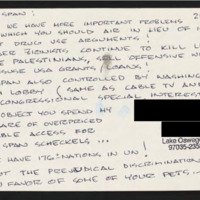 SPAN!
WE HAVE MORE IMPORTANT PROBLEMS
WHICH YOU SHOULD AIR IN LIEU OF
DRUG USE ARGUMENTS!
ZIONISTS CONTINUE TO KILL
PALESTINIANS, OFFENSIVE
USA GRANTS, LOANS,
ALSO CONTROLLED BY
LOBBY (SAME AS CABLE TV AN
CONGRESSIONAL SPECIAL INTERES
OBJECT YOU SPEND MY
ARE OF OVERPRICED
BLE ACCESS FOR
SPAN SCHECKELS...
HAVE 176 NATIONS IN UN!
OT THE PREJUDICAL DISCRIMINATION
FAVOR OF SOME OF YOUR PETS...
Lake Oswego
97035-238